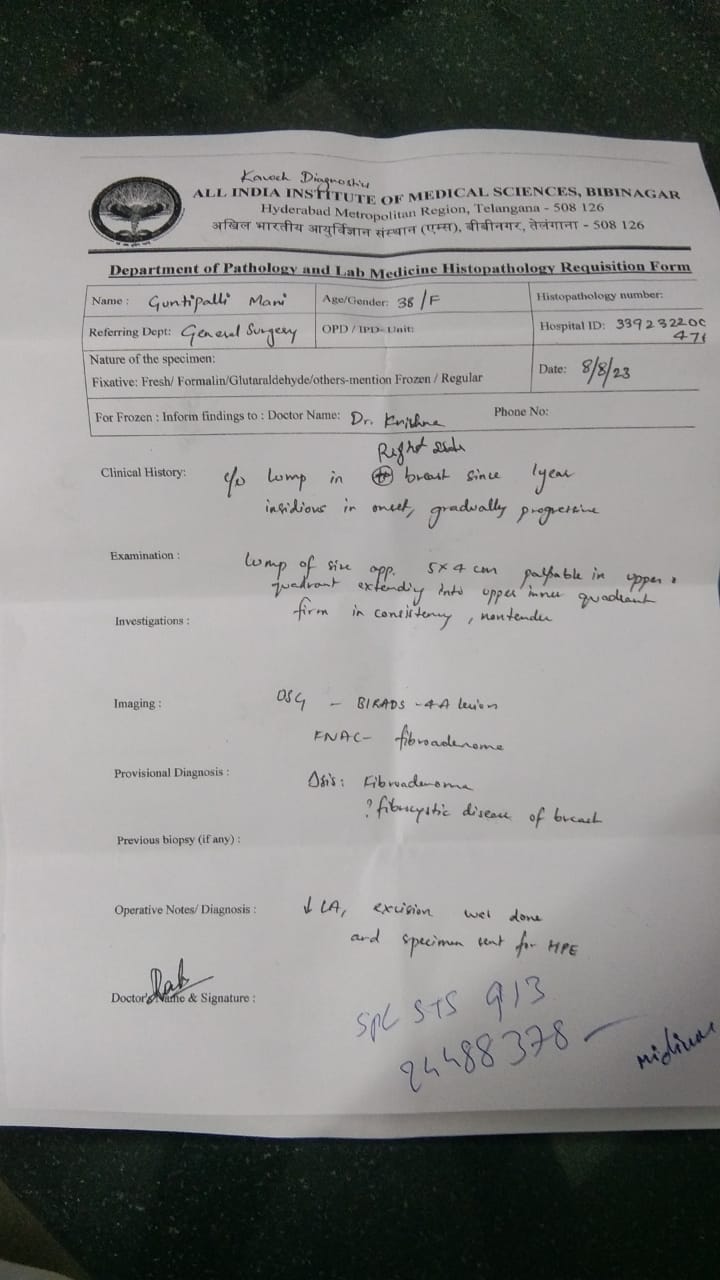 Kavach Diagnostics
ALL INDIA INSTITUTE OF MEDICAL SCIENCES, BIBINAGAR
Hyderabad Metropolitan Region, Telangana - 508 126
अखिल भारतीय आयुर्विज्ञान संस्थान (एम्स), बीबीनगर, तेलंगाना - 508 126
Department of Pathology and Lab Medicine Histopathology Requisition Form
Name : Guntipalli Mani Age/Gender: 38/F Histopathology number:
Referring Dept: General Surgery OPD / IPD- Unit: Hospital ID: 33923220047
Nature of the specimen:
Fixative: Fresh/ Formalin/Glutaraldehyde/others-mention Frozen / Regular Date: 8/8/23
For Frozen : Inform findings to : Doctor Name: Dr. Krishna Phone No:
Right side
Clinical History: c/o lump in breast since 1year
insidious in onset, gradually progressive
Examination : lump of size app. 5×4 cm palpable in upper
quadrant extending into upper inner quadrant
firm in consistency, nontender
Investigations :
Imaging : USG - BIRADS -4A lesion
FNAC- fibroadenoma
Provisional Diagnosis : Δsis: Fibroadenoma
? fibrocystic disease of breast
Previous biopsy (if any) :
Operative Notes/ Diagnosis : ↓ LA, excision was done
and specimen sent for HPE
Doctor's Name & Signature :
SPL STS 913
24488378